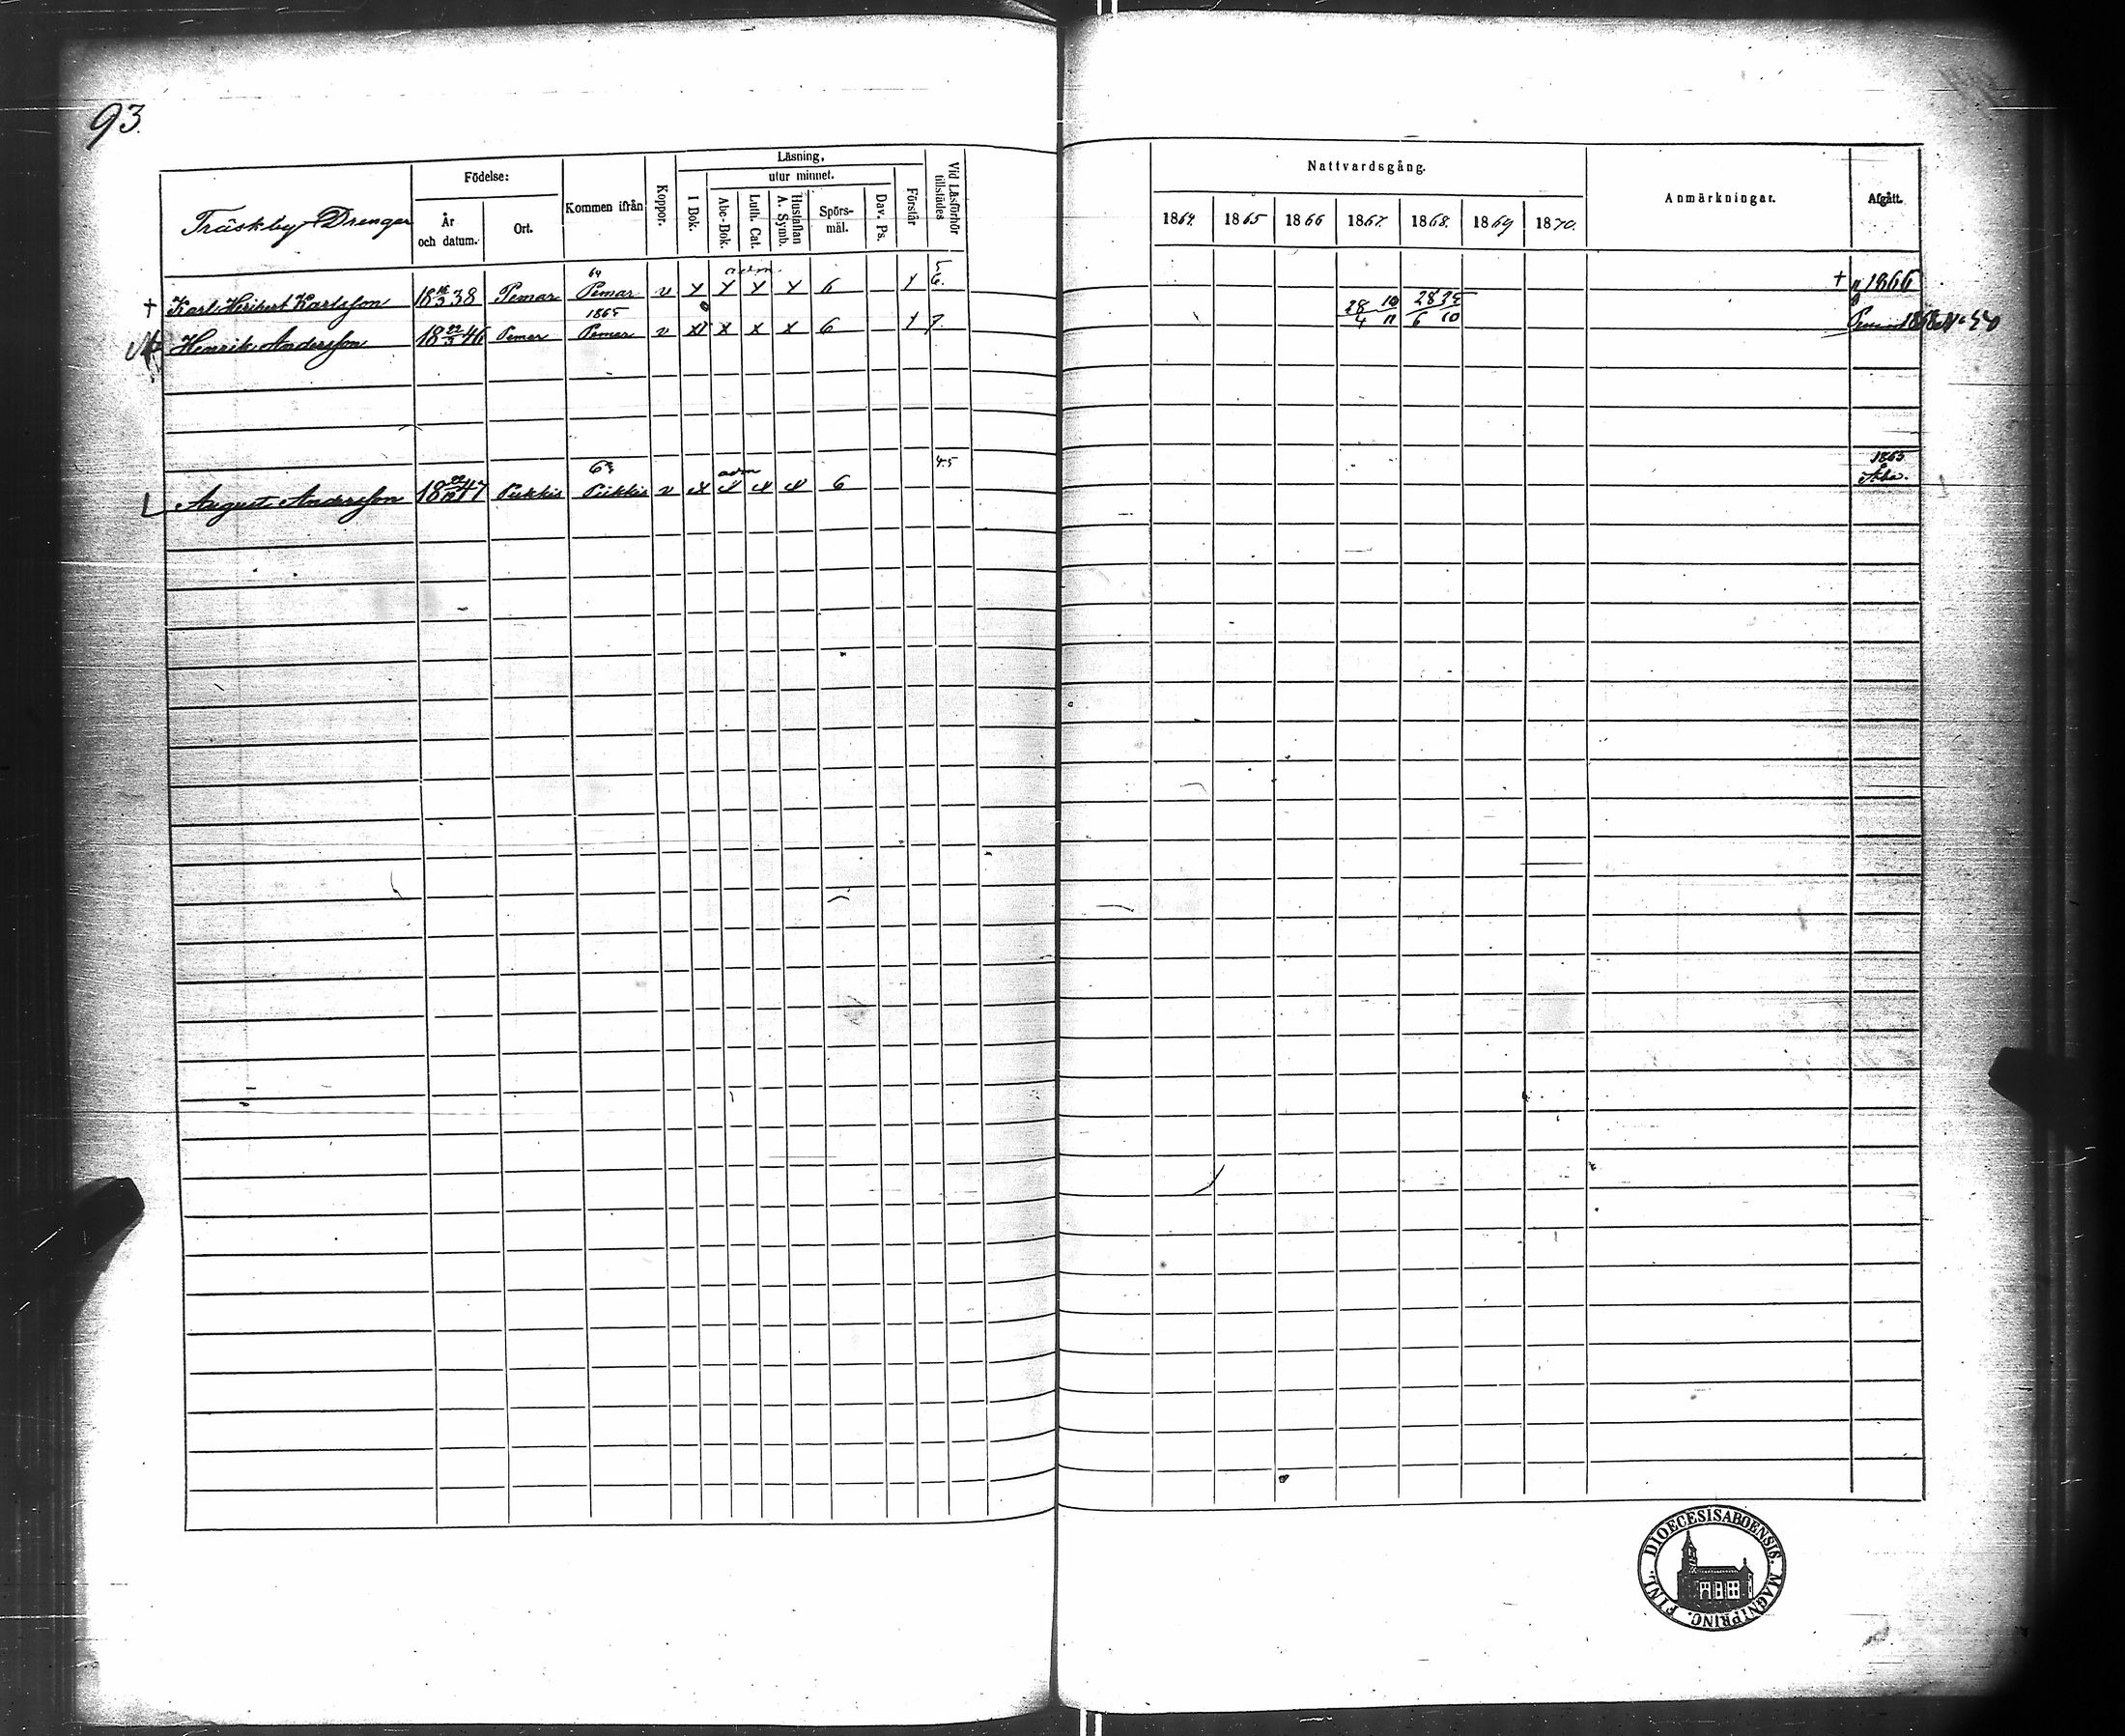 93.
Träskby Drengar
Födelse:
År och datum.
Ort.
Kommen ifrån
Koppor.
Läsning,
I Bok.
utur minnet.
Abc-Bok.
Luth. Cat.
Hustaflan A. Symb.
Spörs-mål.
Dav. Ps.
Förstår
Vid Läsförhör tillstädes
Nattvardsgång.
1864. 1865 1866 1867. 1868. 1869 1870.
Anmärkningar.
Afgått.
64 adm. 5
† Karl Heribert Karlsson 18 16/3 38 Pemar Pemar v x x x x 6 1 6. † 1866
1865 28/4 10/11 28/6 25/10
Henrik Andersson 18 22/3 46 Pemar Pemar v x x x x 6 1 7. Pemar 1868 N: 50
63 adm 4.5 1865
L August Andersson 18 22/12 47 Piikkis Piikkis v x x x x 6 Åbo.
DIOECESIS ABOENSIS. MAGNI PRINC. FINL.